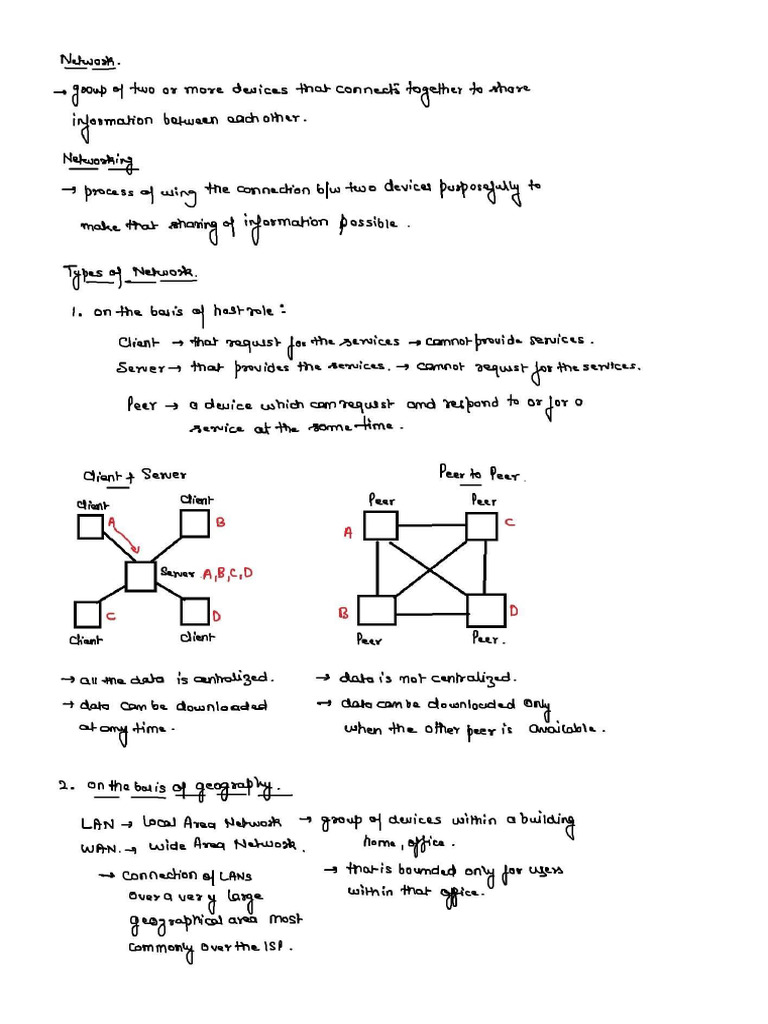 Network.
→ group of two or more devices that connects together to share
information between each other.
Networking
→ process of using the connection b/w two devices purposefully to
make that sharing of information possible.
Types of Network.
1. on the basis of host role :-
Client → that request for the services → cannot provide services.
Server → that provides the services. → cannot request for the services.
Peer → a device which can request and respond to or for a
service at the same time.
Client + Server
Client
Client
A
B
Server A,B,C,D
C
D
Client
Client
Peer to Peer.
Peer
Peer
A
C
B
D
Peer
Peer.
→ all the data is centralized.
→ data can be downloaded
at any time.
→ data is not centralized.
→ data can be downloaded only
when the other peer is available.
2. on the basis of geography.
LAN → Local Area Network → group of devices within a building
home, office.
→ that is bounded only for users
within that office.
WAN. → Wide Area Network.
→ connection of LANs
over a very large
geographical area most
commonly over the ISP.